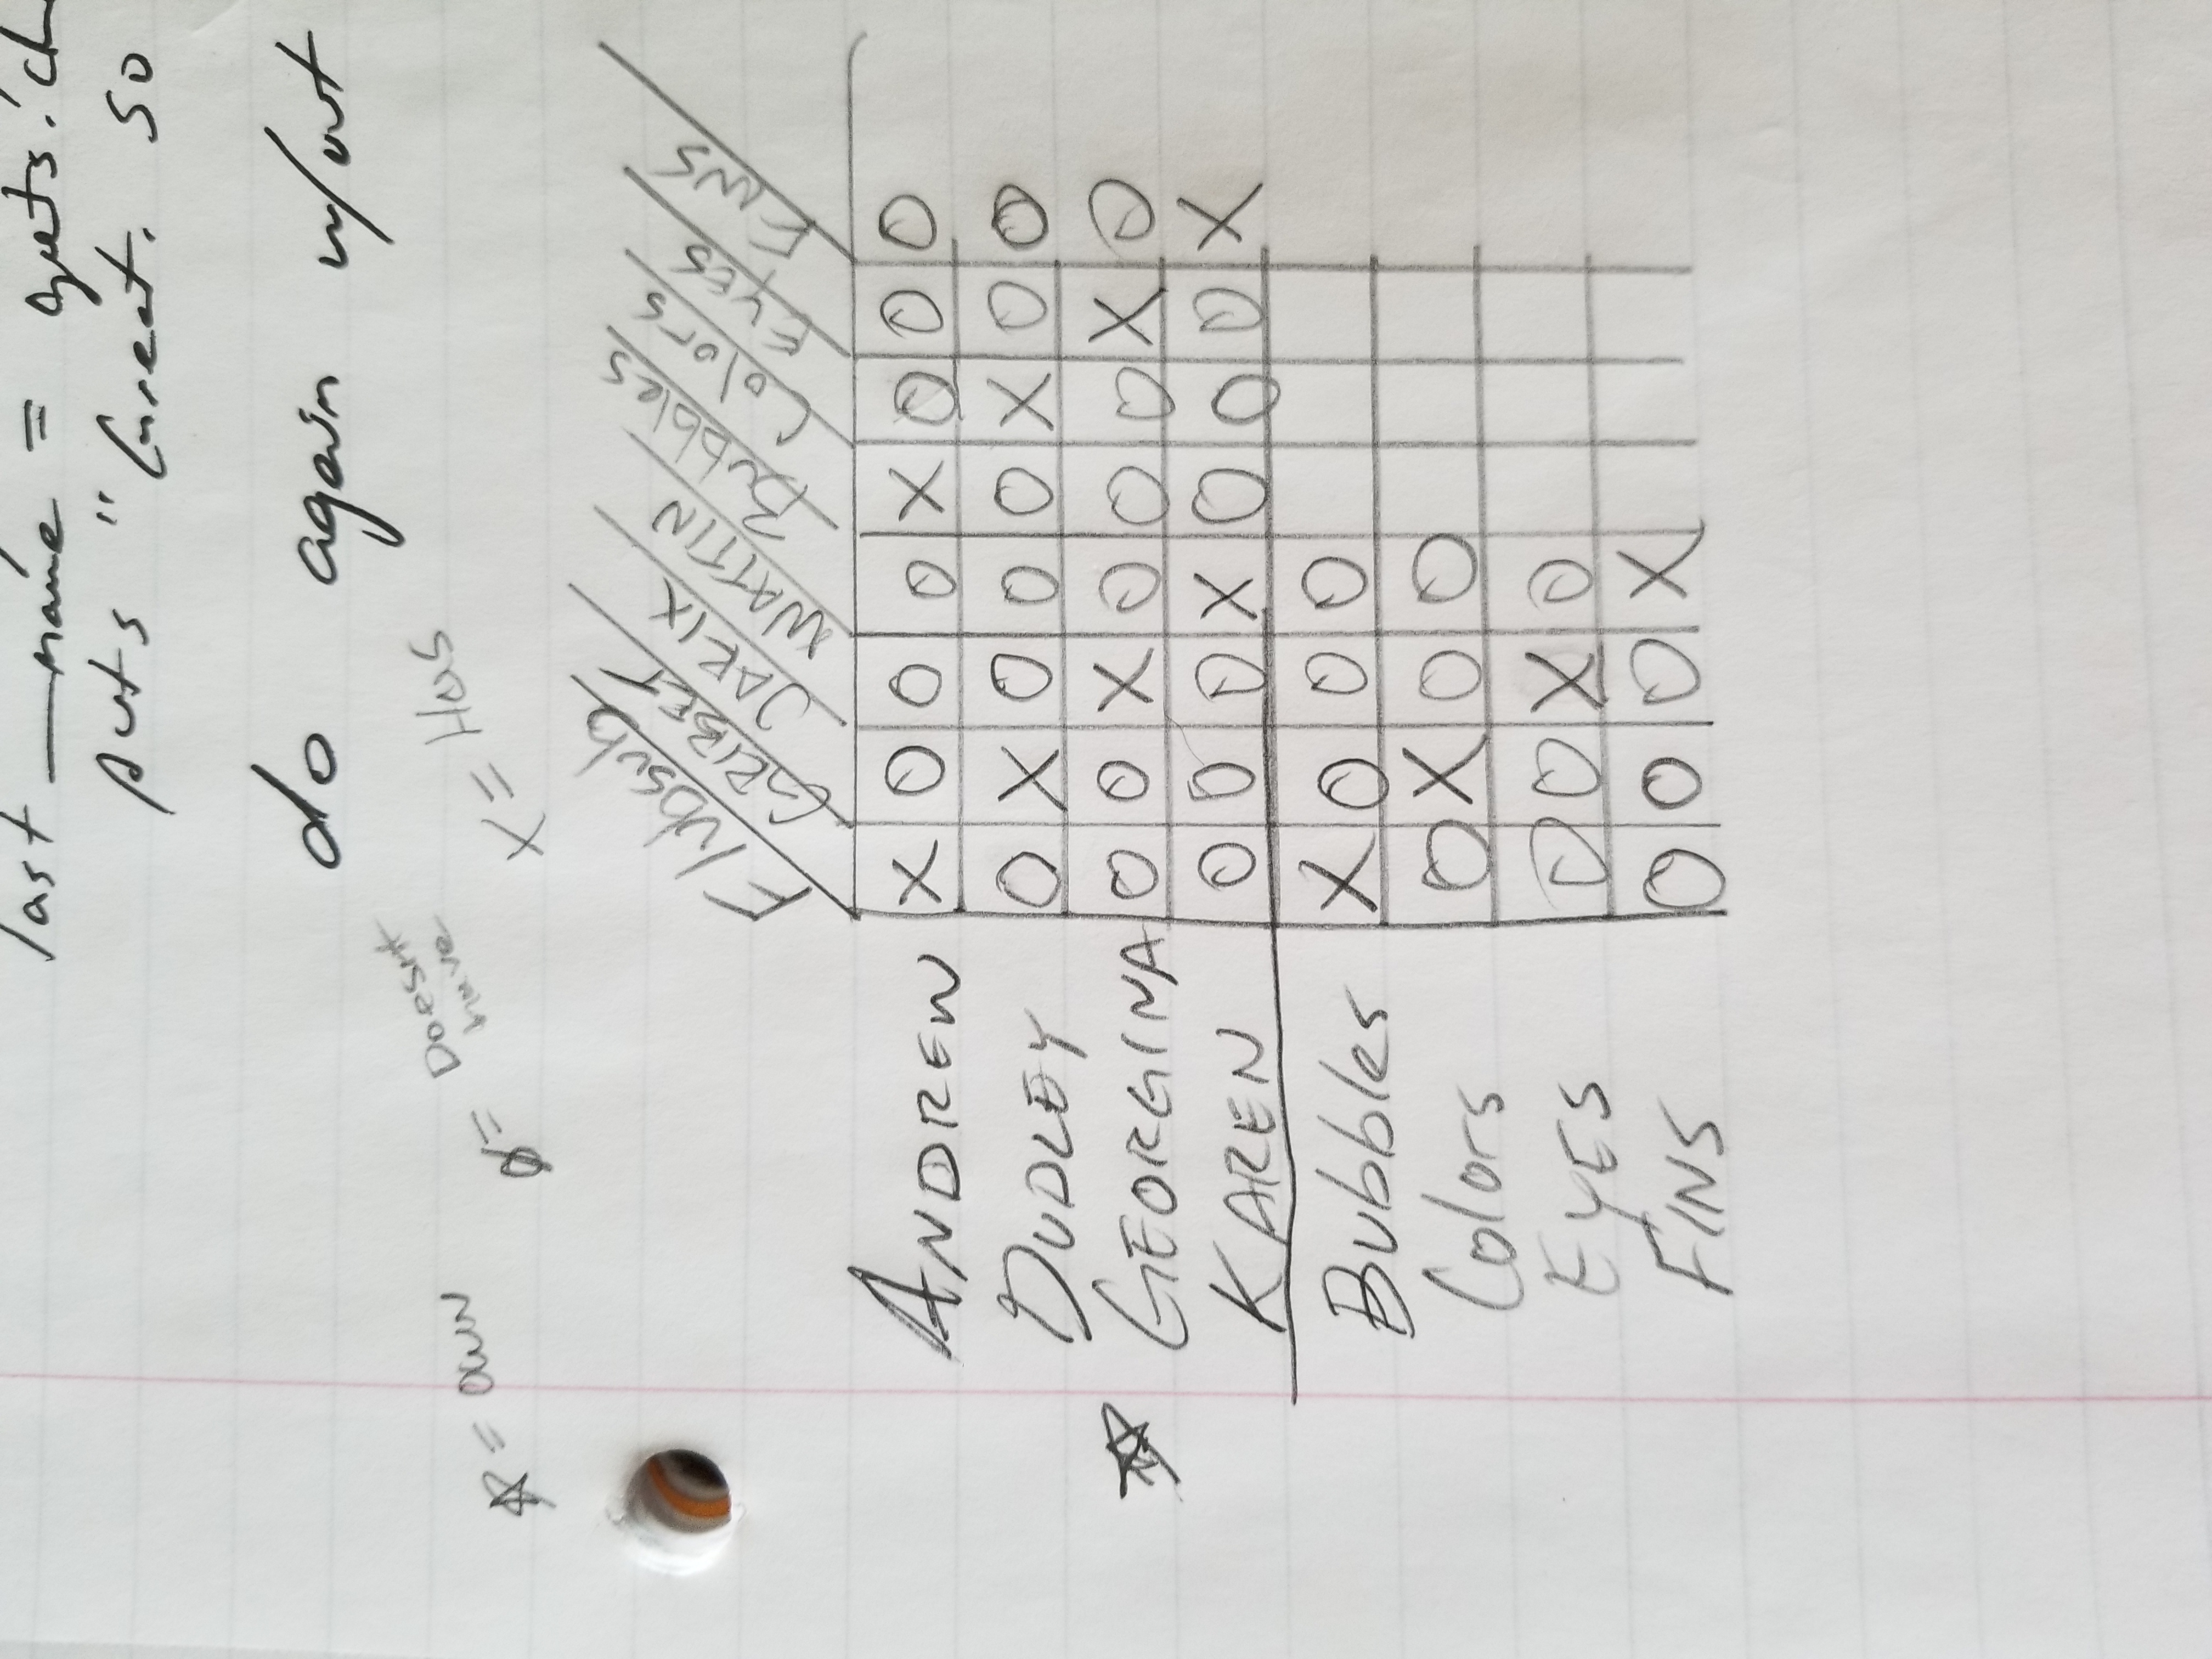 last_name = gets.ch
puts "Great. So
do again w/out
☆ = own
O = Doesnt have
X = Has
Flubsub GRIBET JARIX WATTIN Bubbles Colors EYES FINS
ANDREW X O O O X O O O
DUDLEY O X O O O X O O
☆ GEORGINA O O X O O O X O
KAREN O O O X O O O X
Bubbles X O O O
Colors O X O O
EYES O O X O
FINS O O O X